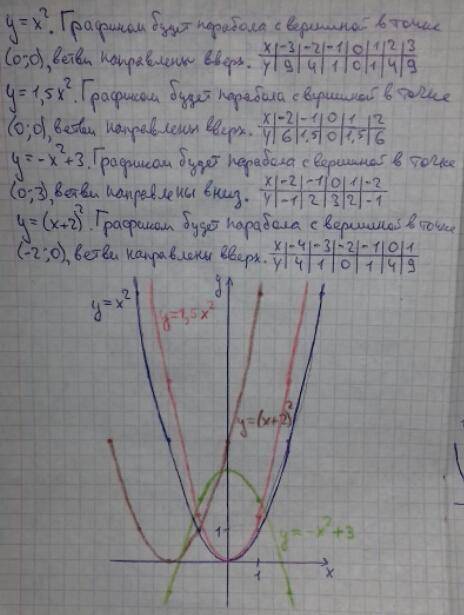 y = x². Графиком будет парабола с вершиной в точке
(0;0), ветви направлены вверх. x | -3 | -2 | -1 | 0 | 1 | 2 | 3
y | 9 | 4 | 1 | 0 | 1 | 4 | 9
y = 1,5x². Графиком будет парабола с вершиной в точке
(0;0), ветви направлены вверх. x | -2 | -1 | 0 | 1 | 2
y | 6 | 1,5 | 0 | 1,5 | 6
y = -x² + 3. Графиком будет парабола с вершиной в точке
(0;3), ветви направлены вниз. x | -2 | -1 | 0 | 1 | -2
y | -1 | 2 | 3 | 2 | -1
y = (x+2)². Графиком будет парабола с вершиной в точке
(-2;0), ветви направлены вверх. x | -4 | -3 | -2 | -1 | 0 | 1
y | 4 | 1 | 0 | 1 | 4 | 9
y
y = x²
y = 1,5x²
y = (x+2)²
1
y = -x² + 3
1
x